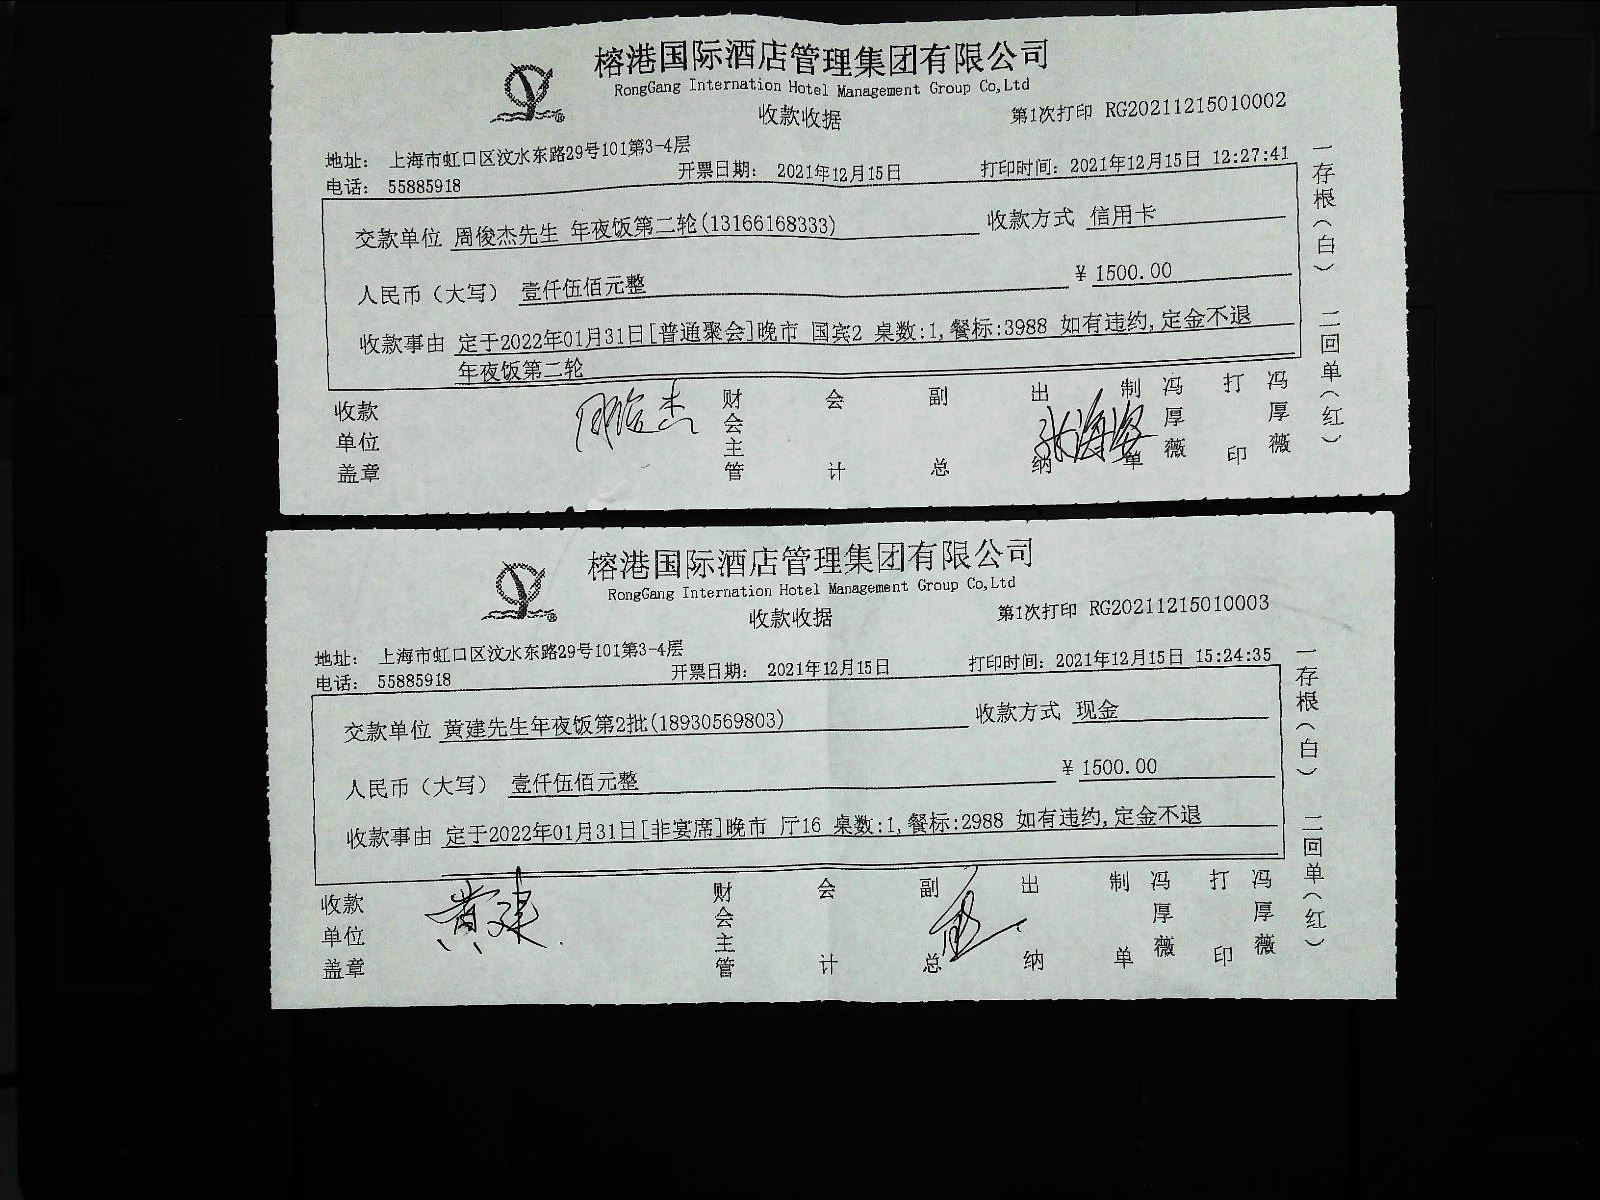 榕港国际酒店管理集团有限公司
RongGang Internation Hotel Management Group Co,Ltd
收款收据
第1次打印 RG20211215010002
地址： 上海市虹口区汶水东路29号101第3-4层
电话： 55885918
开票日期： 2021年12月15日
打印时间：2021年12月15日 12:27:41
交款单位 周俊杰先生 年夜饭第二轮(13166168333) 收款方式 信用卡
人民币（大写） 壹仟伍佰元整 ￥ 1500.00
收款事由 定于2022年01月31日[普通聚会]晚市 国宾2 桌数:1,餐标:3988 如有违约,定金不退
年夜饭第二轮
一存根（白） 二回单（红）
收款单位盖章 周俊杰 财会主管 会计 副总 出纳 张海 制单 冯厚薇 打印 冯厚薇
榕港国际酒店管理集团有限公司
RongGang Internation Hotel Management Group Co,Ltd
收款收据
第1次打印 RG20211215010003
地址： 上海市虹口区汶水东路29号101第3-4层
电话： 55885918
开票日期： 2021年12月15日
打印时间：2021年12月15日 15:24:35
交款单位 黄建先生年夜饭第2批(18930569803) 收款方式 现金
人民币（大写） 壹仟伍佰元整 ￥ 1500.00
收款事由 定于2022年01月31日[非宴席]晚市 厅16 桌数:1,餐标:2988 如有违约,定金不退
一存根（白） 二回单（红）
收款单位盖章 黄建 财会主管 会计 副总 出纳 制单 冯厚薇 打印 冯厚薇